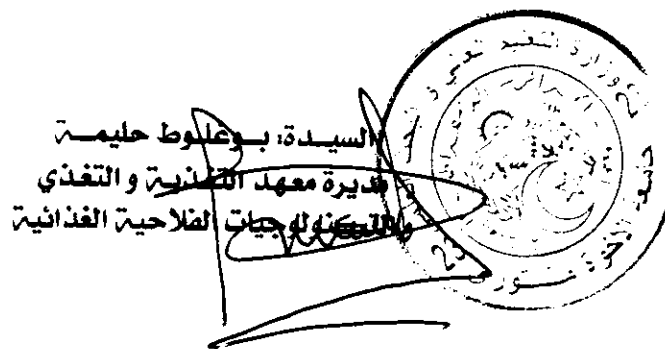 السيدة: بوعلوط حليمة
مديرة معهد التغذية و التغذي
والتكنولوجيات الفلاحية الغذائية
جامعة الإخوة منتوري